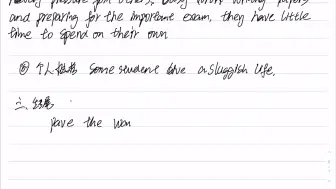 having pressure from others. busy work writing papers
and preparing for the important exam, they have little
time to spend on their own
② 个人 Some student live a sluggish life.
三、结尾
pave the wan